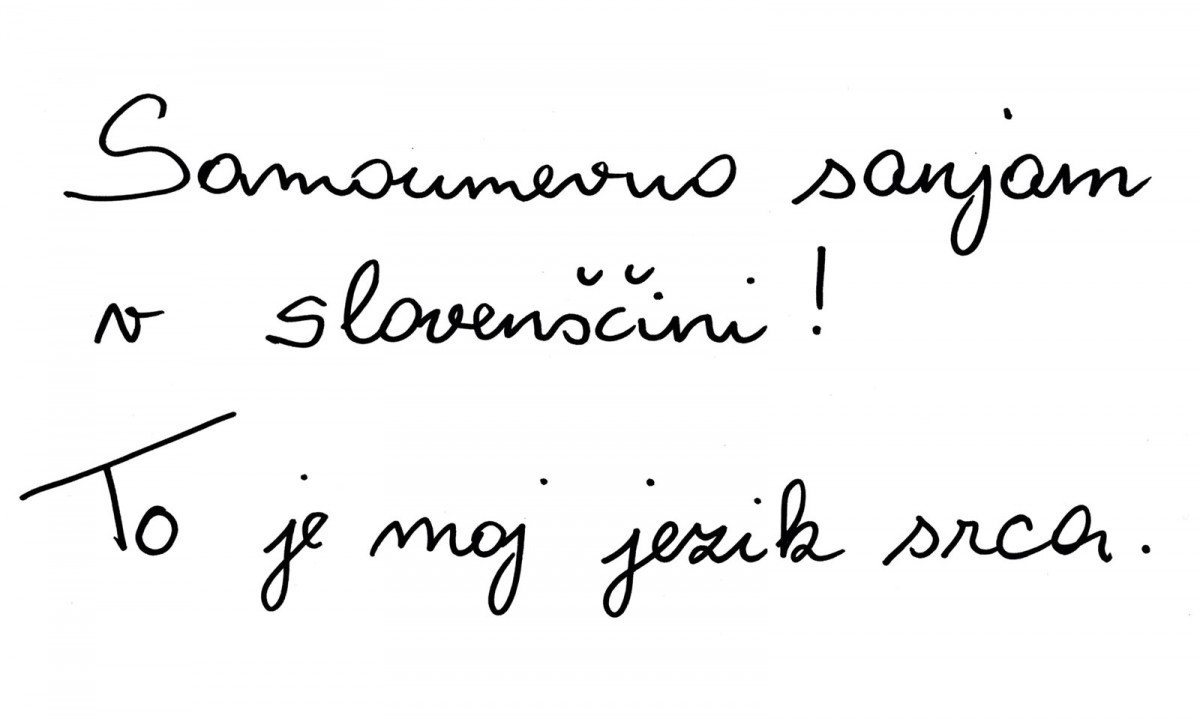 Samoumevno sanjam
v slovenščini!
To je moj jezik srca.